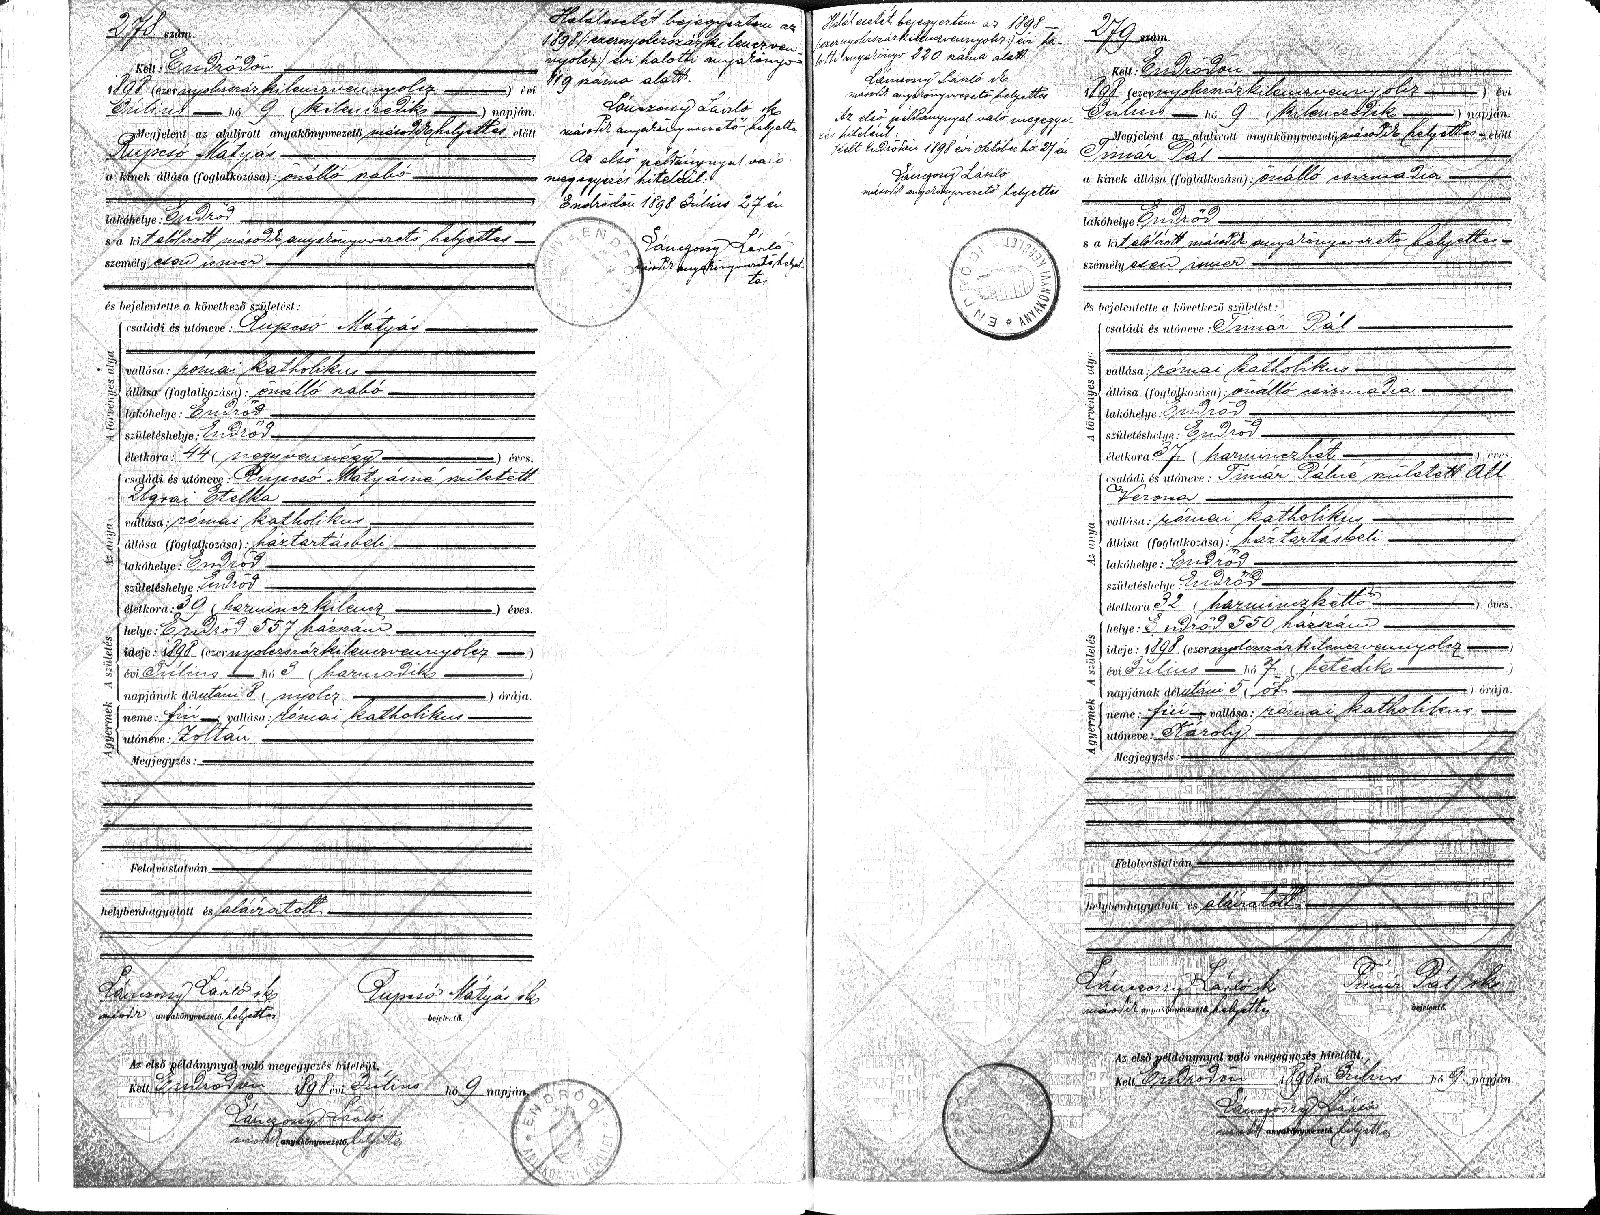 278 szám.
Kelt: Endrődön
1898 (ezernyolczszázkilenczvennyolcz) évi
Július hó 9 (kilenczedik) napján.
Megjelent az alulírott anyakönyvvezető második helyettes előtt
Rupcsó Mátyás
a kinek állása (foglalkozása): önálló szabó
lakóhelye: Endrőd
s a kit alólirott második anyakönyvvezető helyettes
személyesen ismer
és bejelentette a következő születést:
A törvényes atya
családi és utóneve: Rupcsó Mátyás
vallása: római katholikus
állása (foglalkozása): önálló szabó
lakóhelye: Endrőd
születéshelye: Endrőd
életkora: 44 (negyvennégy) éves.
Az anya
családi és utóneve: Rupcsó Mátyásné született
Ugrai Etelka
vallása: római katholikus
állása (foglalkozása): háztartásbeli
lakóhelye: Endrőd
születéshelye Endrőd
életkora: 39 (harminczkilencz) éves.
A születés
helye: Endrőd 557 házszám
ideje: 1898 (ezernyolczszázkilenczvennyolcz)
évi Július hó 3 (harmadik)
napjának délutáni 8 (nyolcz) órája.
A gyermek
neme: fiú vallása: római katholikus
utóneve: Zoltán
Megjegyzés:
Felolvastatván
helybenhagyatott és aláíratott
Lánczony László sk Rupcsó Mátyás sk
második anyakönyvvezető helyettes bejelentő.
Az első példánynyal való megegyezés hiteléül.
Kelt Endrődön 1898 évi Július hó 9 napján.
Lánczony László
másodk anyakönyvvezető helyettes
ENDRŐDI
Halálesetét bejegyeztem az
1898 (ezernyolczszázkilenczven-
nyolcz) évi halotti anyakönyv
119 száma alatt.
Lánczony László sk
másodk anyakönyvvezető helyettes
Az első példánynyal való
megegyezés hiteléül.
Endrődön 1898 Július 27 én
Lánczony László
másodk anyakönyvvezető helyet-
tes
ENDRŐDI
Halálesetét bejegyeztem az 1898
(ezernyolczszázkilenczvennyolcz) évi ha-
lotti anyakönyv 220 száma alatt
Lánczony László sk
másodk anyakönyvvezető helyettes
Az első példánynyal való megegye-
zés hiteléül.
Kelt Endrődön 1898 évi október hó 27 én
Lánczony László
másodk anyakönyvvezető helyettes
ENDRŐDI ANYAKÖNYVI KERÜLET
279 szám
Kelt: Endrődön
1898 (ezernyolczszázkilenczvennyolcz) évi
Július hó 9 (kilenczedik) napján.
Megjelent az alulírott anyakönyvvezető második helyettes előtt
Tímár Pál
a kinek állása (foglalkozása): önálló csizmadia
lakóhelye Endrőd
s a kit alólirott második anyakönyvvezető helyettes
személyesen ismer
és bejelentette a következő születést:
A törvényes atya
családi és utóneve: Tímár Pál
vallása: római katholikus
állása (foglalkozása): önálló csizmadia
lakóhelye: Endrőd
születéshelye: Endrőd
életkora 37 (harminczhét) éves.
Az anya
családi és utóneve: Tímár Pálné született
Verona
vallása: római katholikus
állása (foglalkozása): háztartásbeli
lakóhelye: Endrőd
születéshelye Endrőd
életkora 32 (harminczkettő) éves.
A születés
helye: Endrőd 550 házszám
ideje: 1898 (ezernyolczszázkilenczvennyolcz)
évi Július hó 7 (hetedik)
napjának délutáni 5 (öt) órája.
A gyermek
neme: fiú vallása: római katholikus
utóneve: Károly
Megjegyzés:
Felolvastatván
helybenhagyatott és aláíratott
Lánczony László sk Tímár Pál sk
második anyakönyvvezető helyettes bejelentő.
Az első példánynyal való megegyezés hiteléül.
Kelt Endrődön 1898 évi Július hó 9 napján
Lánczony László
másodk anyakönyvvezető helyettes